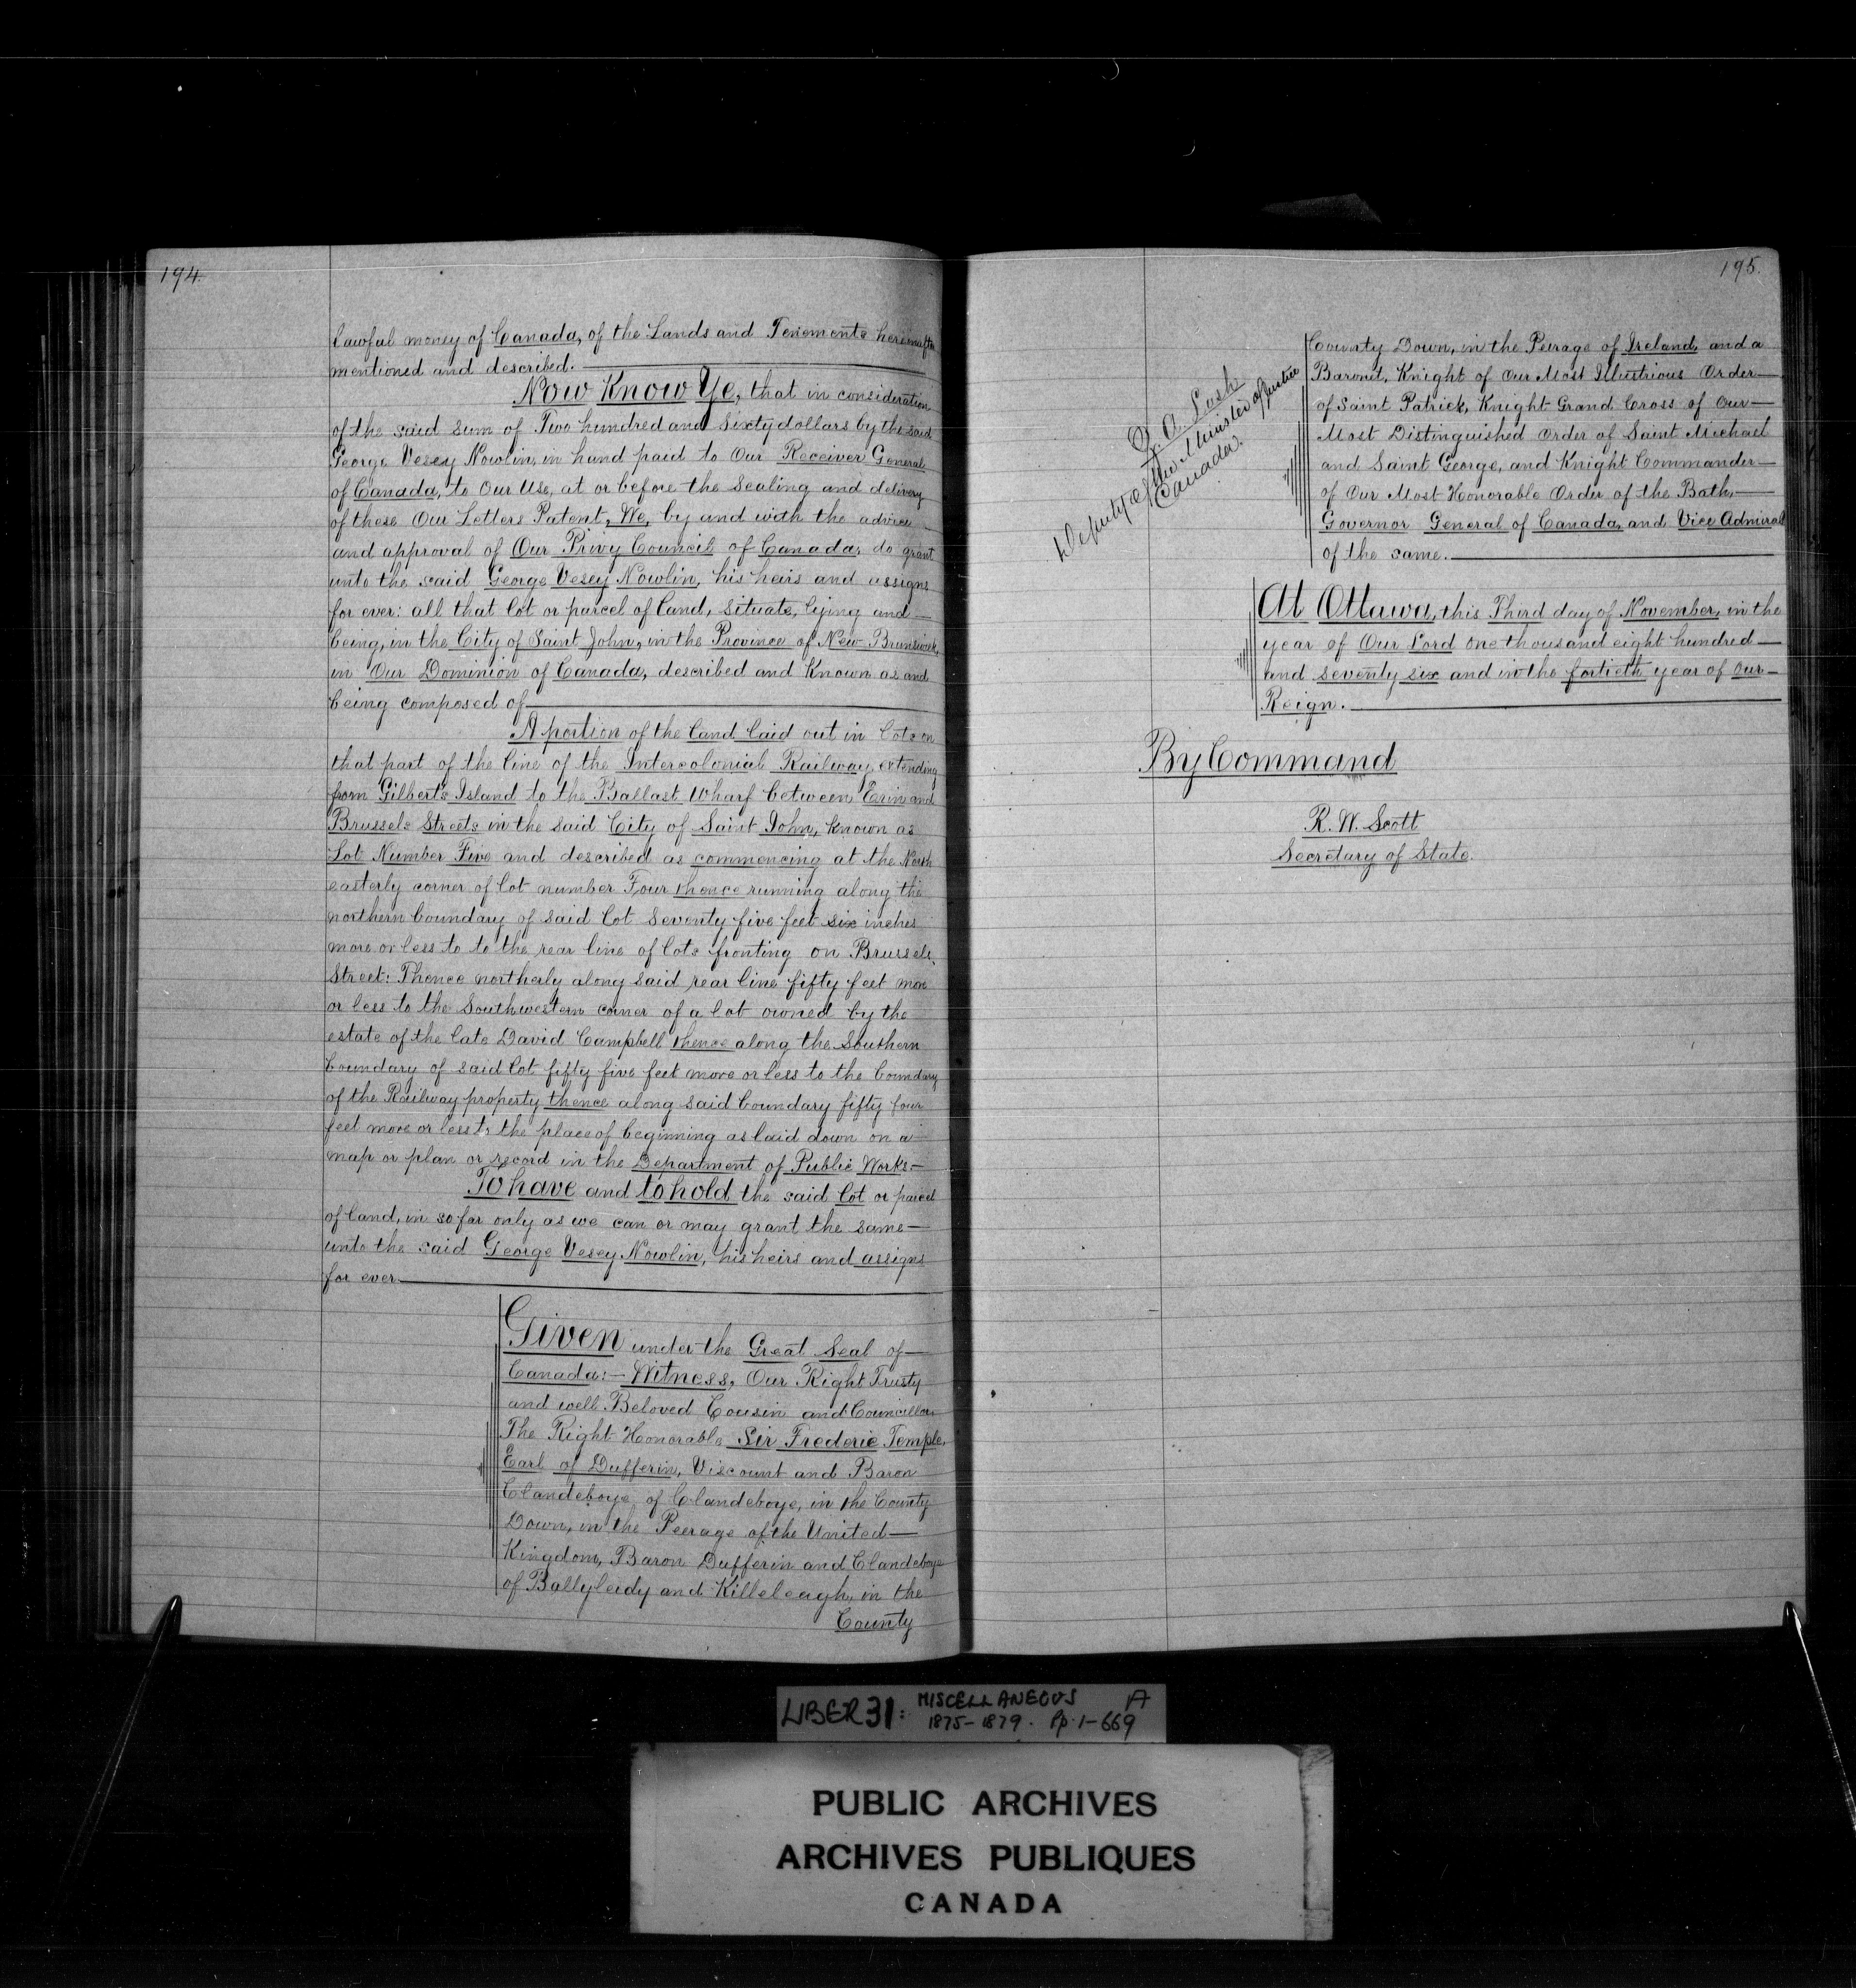 194.
lawful money of Canada, of the Lands and Tenements hereinafter
mentioned and described.
Now Know Ye, that in consideration
of the said sum of Two hundred and Sixty dollars by the said
George Vesey Nowlin, in hand paid to Our Receiver General
of Canada, to Our Use, at or before the Sealing and delivery
of these Our Letters Patent, We, by and with the advice
and approval of Our Privy Council of Canada, do grant
unto the said George Vesey Nowlin, his heirs and assigns
for ever: all that lot or parcel of land, situate, lying and
being, in the City of Saint John, in the Province of New Brunswick,
in Our Dominion of Canada, described and Known as and
being composed of
A portion of the land laid out in lots on
that part of the line of the Intercolonial Railway extending
from Gilberts Island to the Ballast Wharf between Erin and
Brussels Streets in the said City of Saint John, known as
Lot Number Five and described as commencing at the North
easterly corner of lot number Four thence running along the
northern boundary of said lot Seventy five feet six inches
more or less to to the rear line of lots fronting on Brussels
Street: Thence northerly along said rear line fifty feet more
or less to the Southwestern corner of a lot owned by the
estate of the late David Campbell thence along the Southern
boundary of said lot fifty five feet more or less to the boundary
of the Railway property thence along said boundary fifty four
feet more or less to the place of beginning as laid down on a
map or plan or record in the Department of Public Works.—
To have and to hold the said lot or parcel
of land, in so far only as we can or may grant the same—
unto the said George Vesey Nowlin, his heirs and assigns
for ever.
Given under the Great Seal of—
Canada:— Witness, Our Right Trusty
and well Beloved Cousin and Councillor
The Right Honorable Sir Frederic Temple,
Earl of Dufferin, Viscount and Baron
Clandeboye, of Clandeboye, in the County
Down, in the Peerage of the United—
Kingdom, Baron Dufferin and Clandeboye
of Ballyleidy and Killeleagh, in the
County
195.
Z. A. Lash
Deputy of the Minister of Justice
Canada.
County Down, in the Peerage of Ireland, and a
Baronet, Knight of Our Most Illustrious Order—
of Saint Patrick, Knight Grand Cross of Our—
Most Distinguished Order of Saint Michael
and Saint George, and Knight Commander—
of Our Most Honorable Order of the Bath,—
Governor General of Canada, and Vice Admiral
of the same.
At Ottawa, this Third day of November, in the
year of Our Lord one thousand eight hundred—
and seventy six and in the fortieth year of Our—
Reign.
By Command
R. W. Scott
Secretary of State.
LIBER 31: MISCELLANEOUS A
1875–1879. Pp. 1–669
PUBLIC ARCHIVES
ARCHIVES PUBLIQUES
CANADA